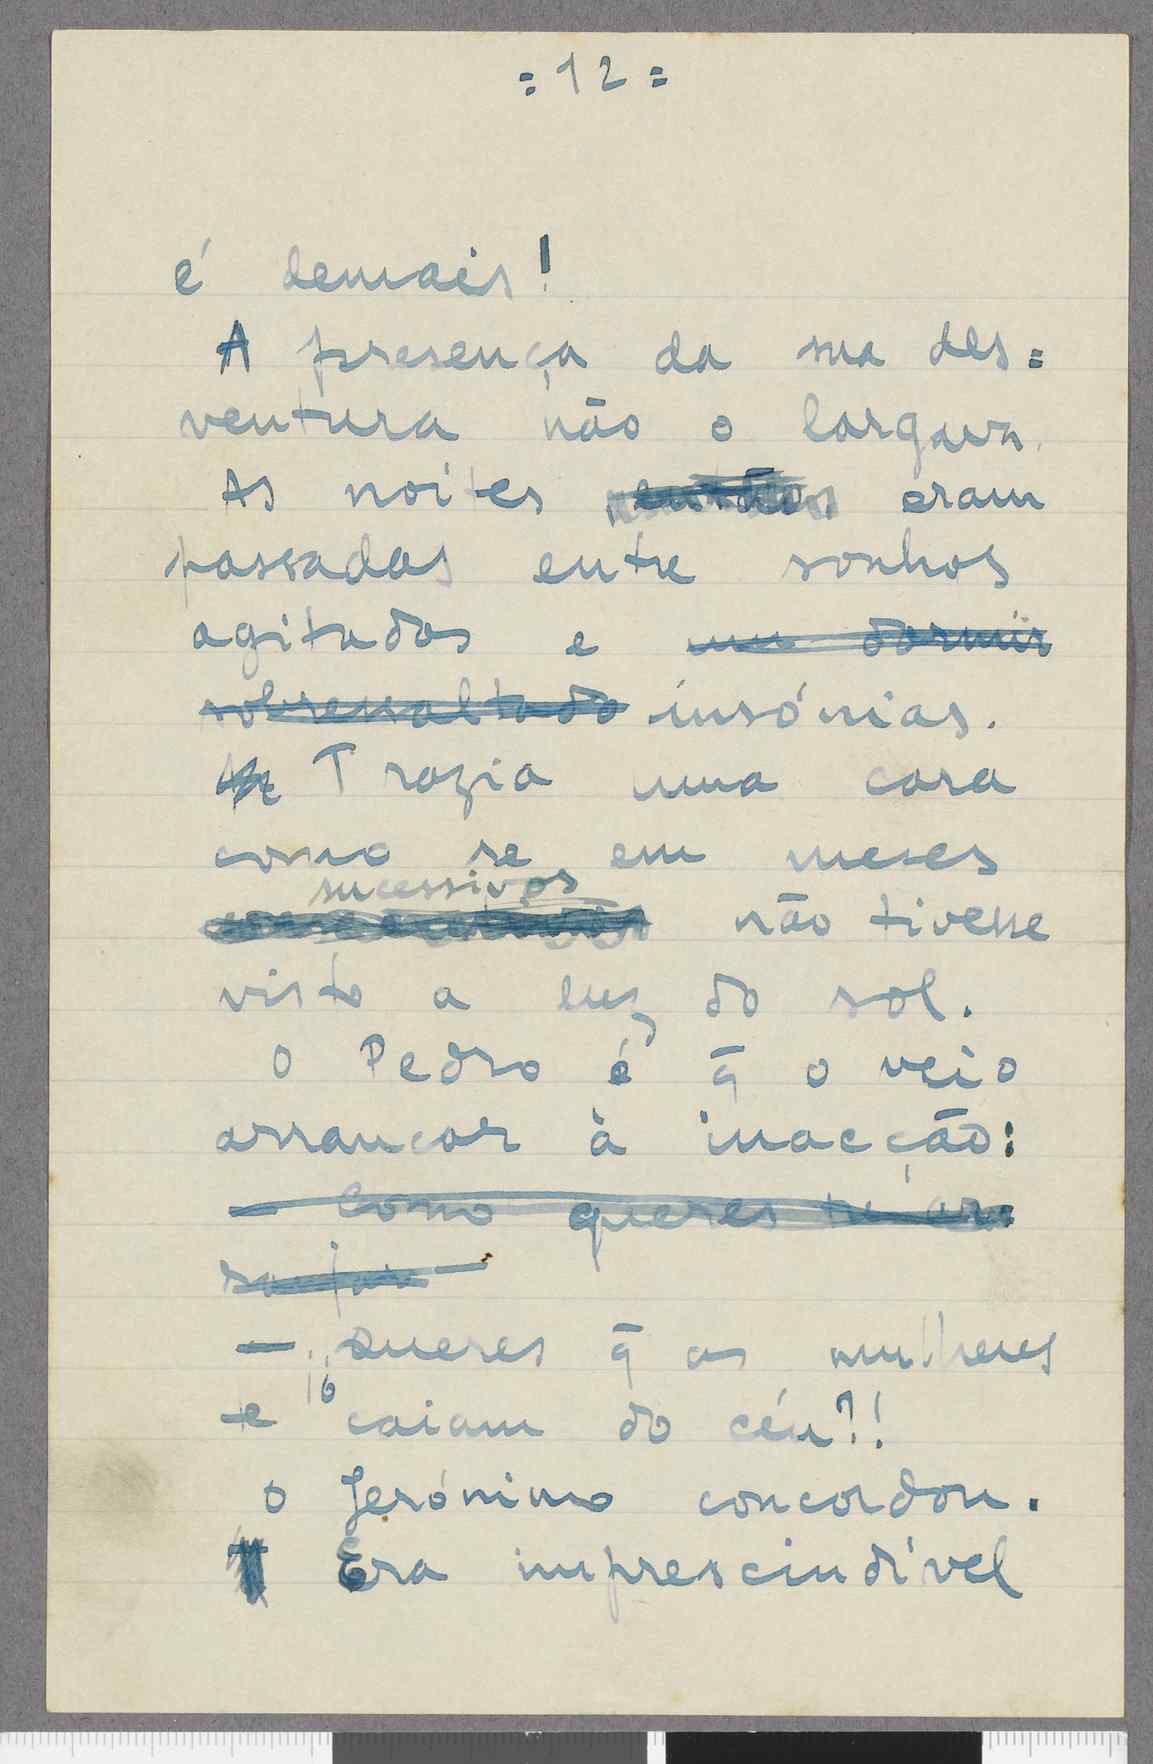 =12=
é demais!
A presença da sua des=
ventura não o largava.
As noites então eram
passadas entre sonhos
agitados e um dormir
sobressaltado insónias.
Trazia uma cara
como se em meses
sucessivos
não tivesse
visto a luz do sol.
O Pedro é q̃ o veio
arrancar à inacção:
— Como queres tu arr
ranjar —
— Queres q̃ as mulheres
te caiam do céu?!
O Jerónimo concordou.
Era imprescindível